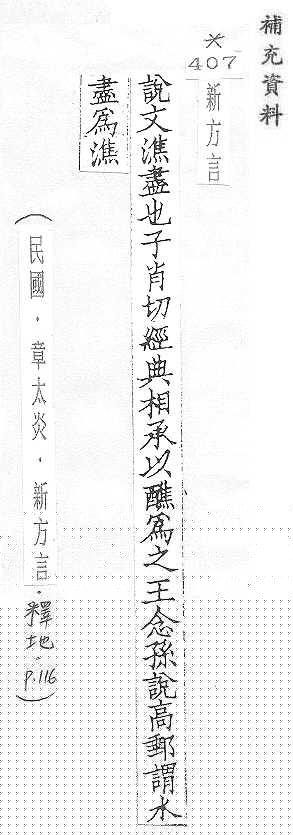 補充資料
*
407
新方言
說文潐盡也子肖切經典相承以醮為之王念孫說高郵謂水
盡為潐
（民國．章太炎．新方言．釋地．P.116）